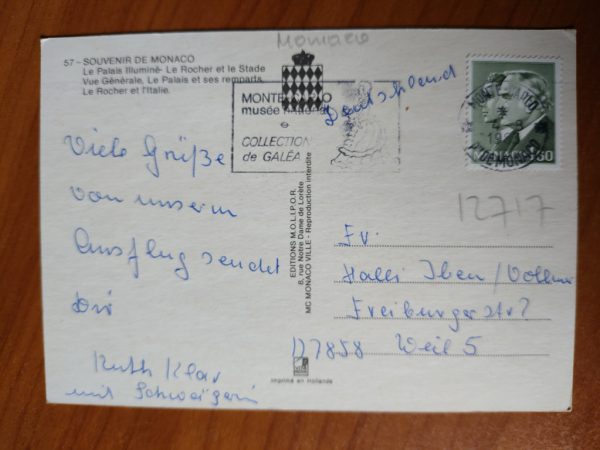 Monaco
57 - SOUVENIR DE MONACO
Le Palais Illuminé - Le Rocher et le Stade
Vue Générale, Le Palais et ses remparts,
Le Rocher et l'Italie.
MONTE
musée national
COLLECTION
de GALÉA
Deutschland
MONTE-CARLO
Viele Grüße
von unserm
Ausflug sendet
Dir
Ruth Klar
mit
EDITIONS M.O.L.I.P.O.R.
8, rue Notre Dame de Lorète
MC MONACO VILLE - Reproduction interdite
12717
Fr.
Halli Iben / Vollmer
Freiburger Str 7
D 7858 Weil 5
Imprimé en Hollande